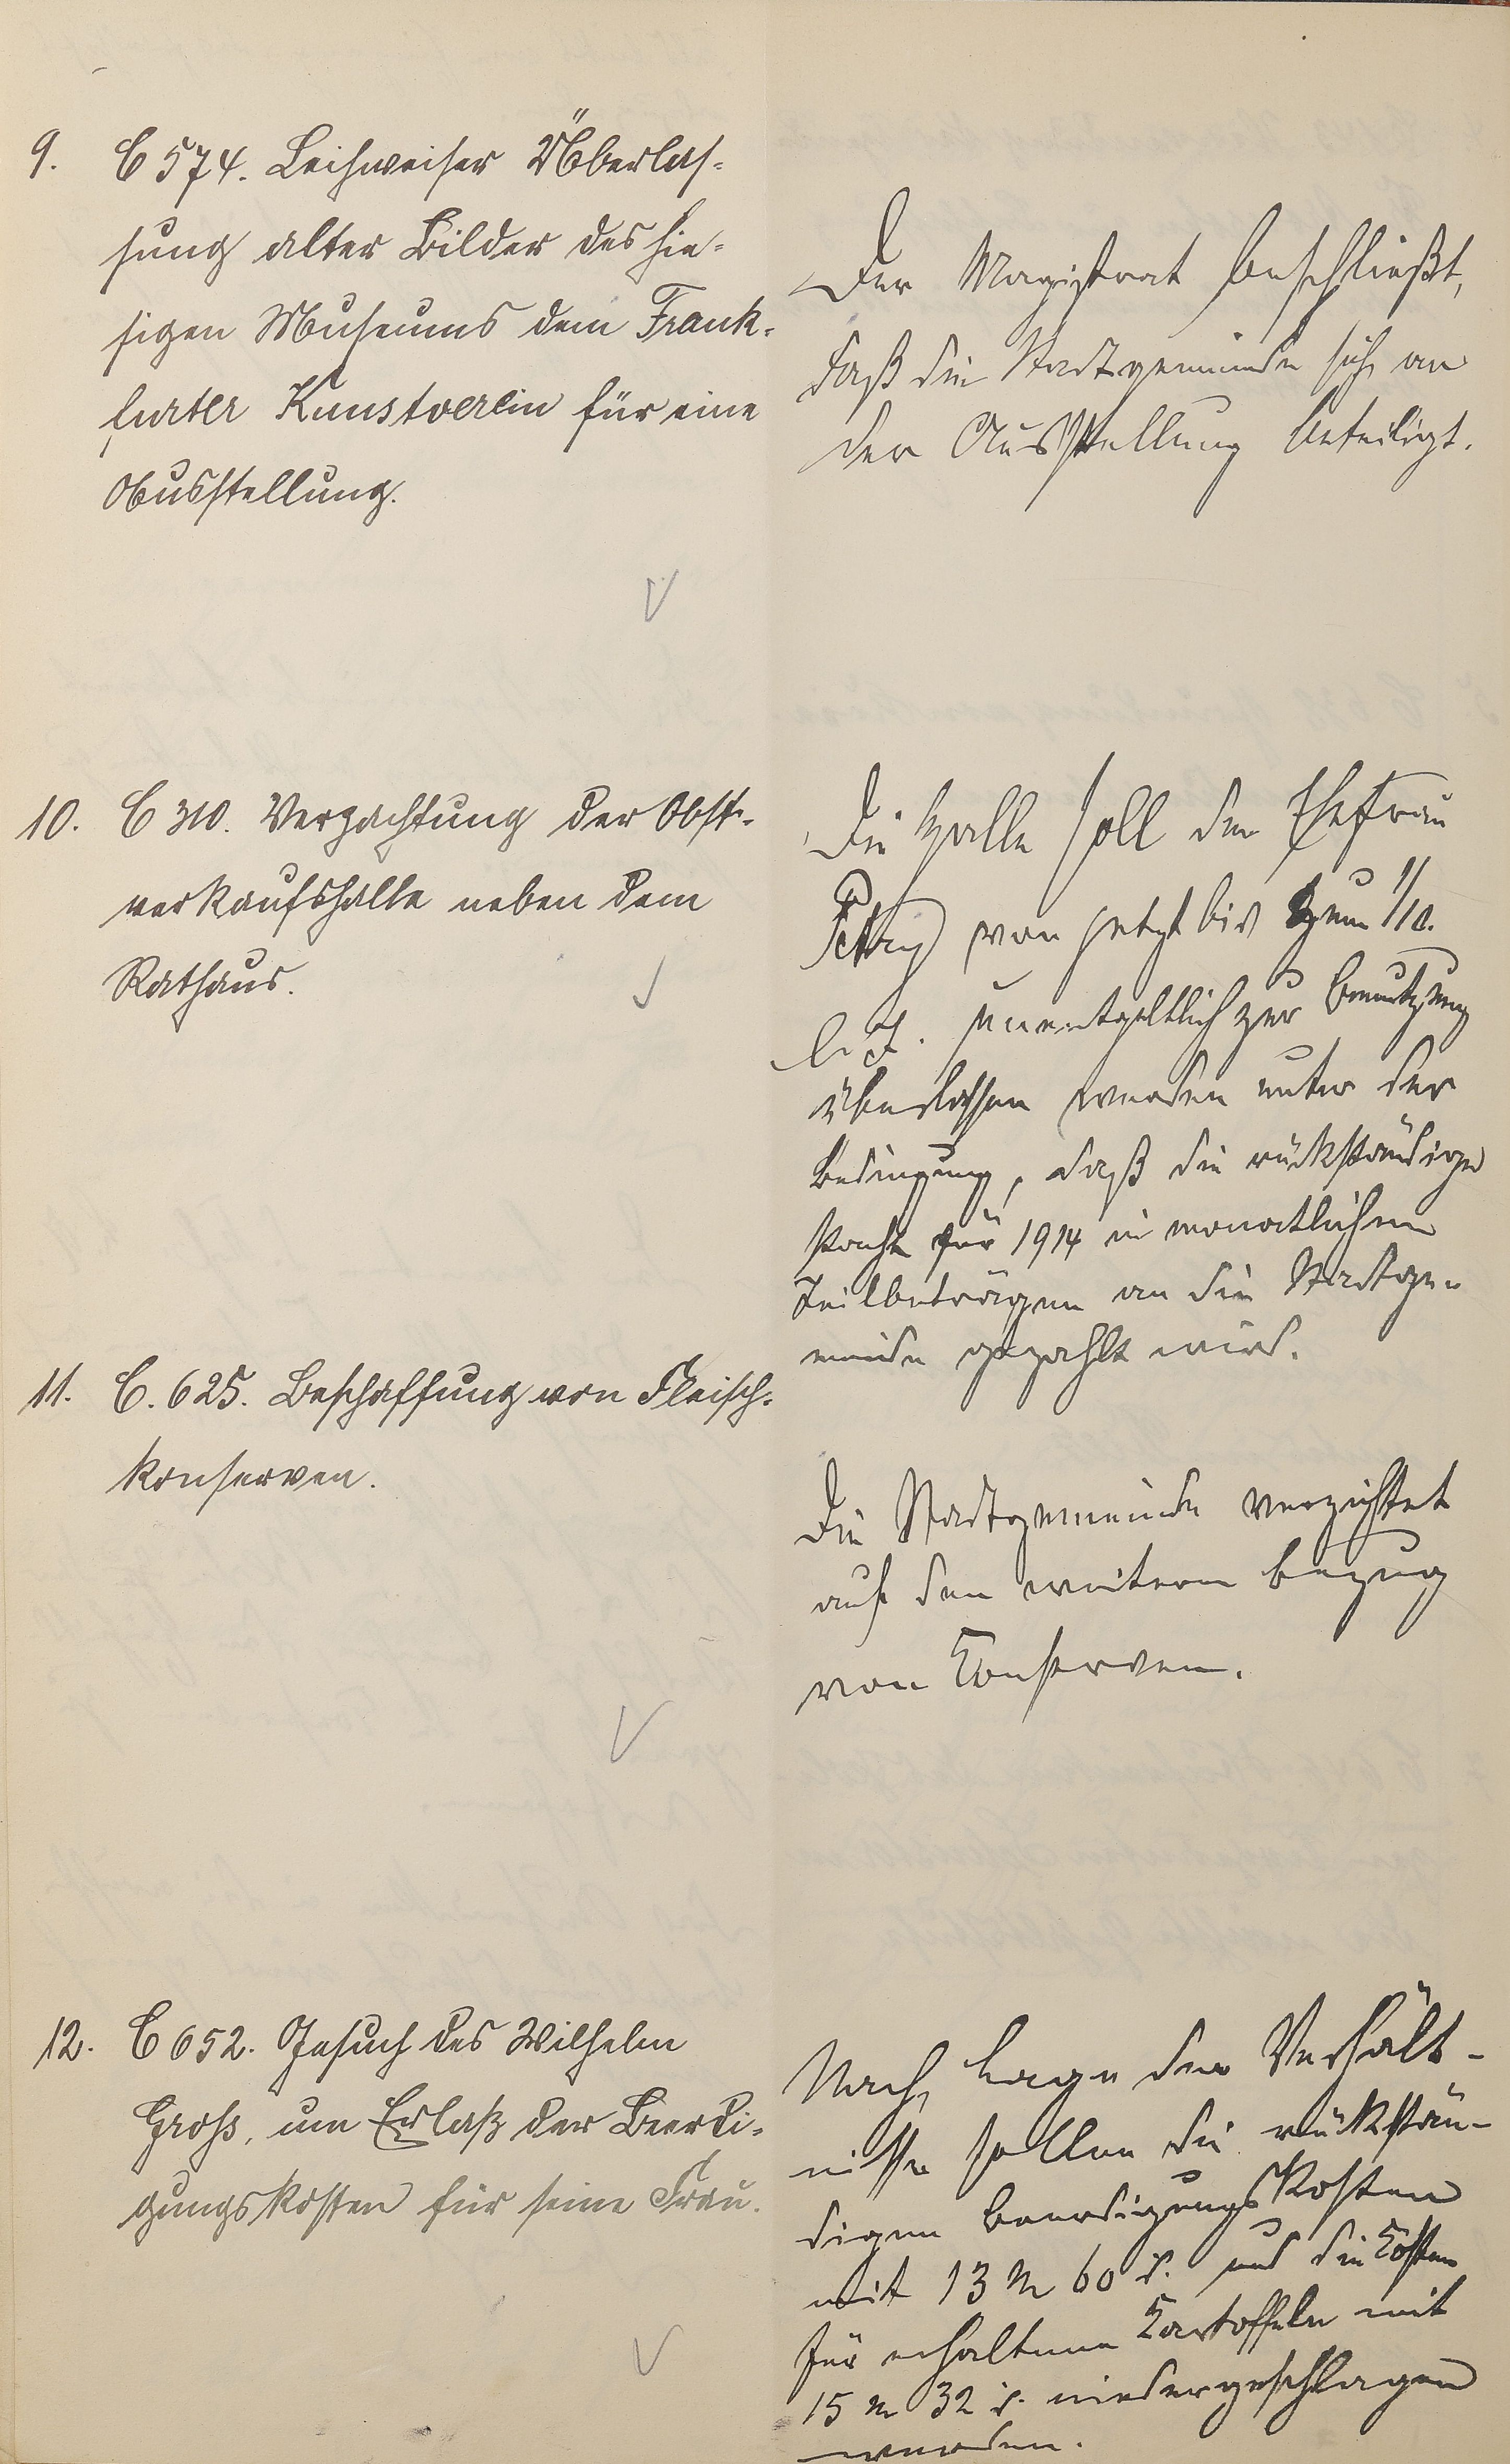 9. C 574. Leihweiser Überlas-
sung alter Bilder des hie-
sigen Museums dem Frank-
furter Kunstverein für eine
Ausstellung.
Der Magistrat beschließt,
daß die Stadtgemeinde sich an
der Ausstellung beteiligt.
10. C 310. Verpachtung der Obst-
verkaufshalle neben dem
Rathaus.
Die Halle soll der Ehefrau
Petry von jetzt bis zum 1/10.
l. J. unentgeltlich zur Benutzung
überlassen werden unter der
Bedingung, daß die rückständige
Pacht für 1914 in monatlichen
Teilbeträgen an die Stadtge-
meinde gezahlt wird.
11. C. 625. Beschaffung von Fleisch-
konserven.
Die Stadtgemeinde verzichtet
auf den weitern Bezug
von Konserven.
12. C 652. Gesuch des Wilhelm
Groß, um Erlaß der Beerdi-
gungskosten für seine Frau.
Nach Lage der Verhält-
nisse sollen die rückstän-
digen Beerdigungskosten
mit 13 M 60 d. und die Kosten
für erhaltene Kartoffeln mit
15 M 32 d. niedergeschlagen
werden.